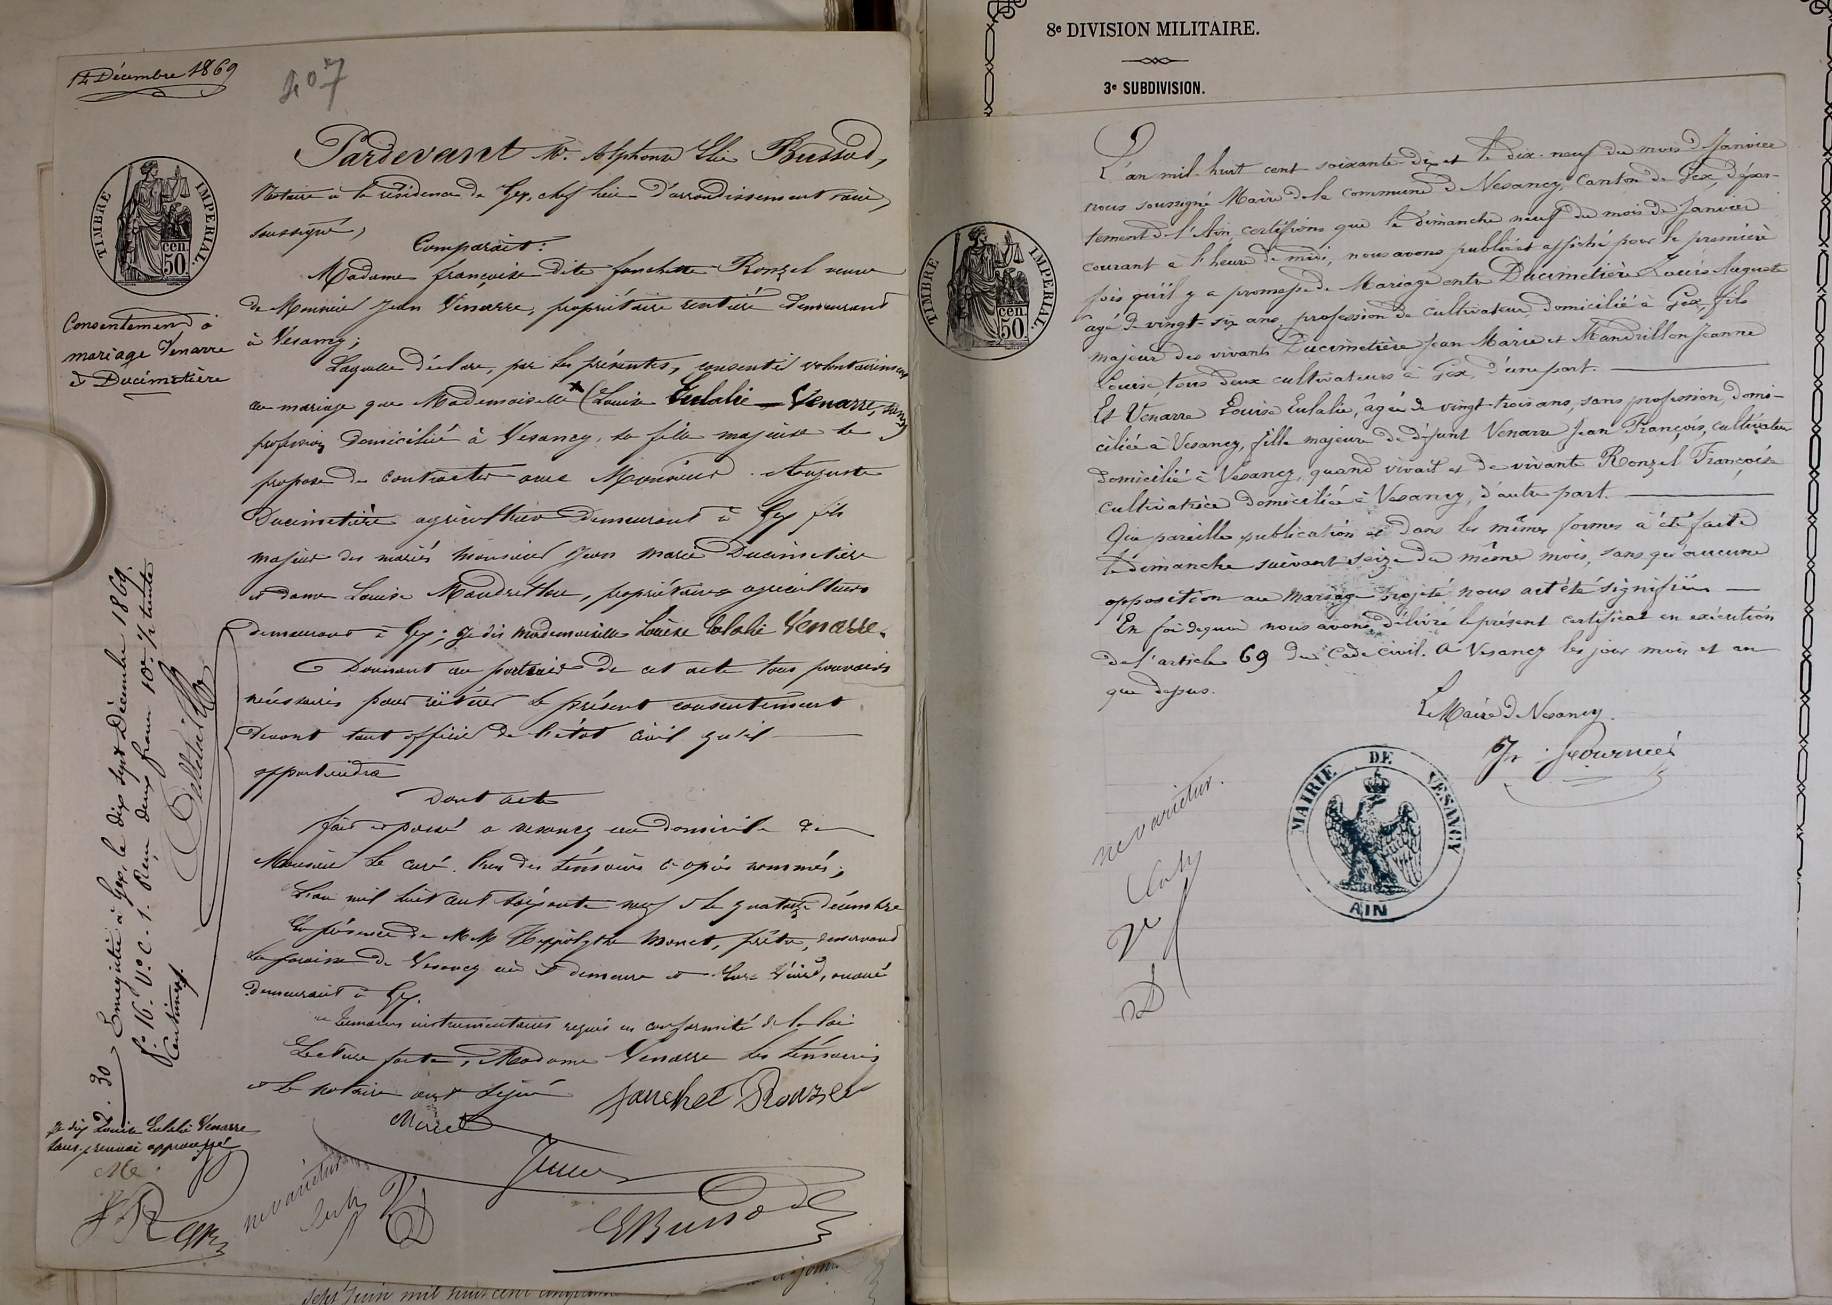 14 Décembre 1869
407
Pardevant Me. Alphonse Elie Bussod,
Notaire à la résidence de Gex, chef lieu d'arrondissement
soussigné,
TIMBRE IMPERIAL.
cen.
50
Comparait:
Madame françoise dite fanchette Ronzel veuve
de Monsieur Jean Venarre, propriétaire rentière demeurant
à Vesancy;
Consentement à
mariage Venarre
et Ducimetière
Laquelle déclare, par les présentes, consentir volontairement
au mariage que Mademoiselle (Louise Eulalie Venarre, sans
profession domiciliée à Vesancy, sa fille majeure se
propose de contracter avec Monsieur Auguste
Ducimetière agriculteur demeurant à Gex fils
majeur des mariés Monsieur Jean marie Ducimetière
et dame Louise Mandrillon, propriétaires agriculteurs
demeurant à Gex; je dis Mademoiselle Louise Eulalie Venarre.
Donnant au porteur de cet acte tous pouvoirs
nécessaires pour réitérer le présent consentement
devant tout officier de l'état civil qu'il
appartiendra
Dont acte
fait et passé a vesancy au domicile de
Monsieur le curé. l'un des témoins ci après nommés;
L'an mil huit cent soixante neuf et le quatorze décembre
En présence de MM Hippolythe Moret, prêtre, desservant
la paroisse de Vesancy où il demeure et
demeurant à Gex.
témoins instrumentaires requis en conformité de la loi
Lecture faite, Madame Venarre les témoins
et le notaire ont signé
fanchet Ronzel
Moret
Bussod
Enregistré à Gex, le dix sept Décembre 1869.
fo. 16. Vo. c. 1. Reçu deux francs 10es. trente
Centimes.
2. 30
Je dis Louise Eulalie Venarre
ne varietur
8e DIVISION MILITAIRE.
3e SUBDIVISION.
TIMBRE IMPERIAL.
cen.
50
L'an mil-huit cent soixante-dix et le dix-neuf du mois de Janvier
nous soussigné Maire de la commune de Vesancy, Canton de Gex, dépar-
tement de l'Ain, certifions que le dimanche neuf du mois de Janvier
courant à l'heure de midi, nous avons publié et affiché pour la première
fois qu'il y a promesse de Mariage entre Ducimetière Louis Auguste
âgé de vingt-six ans, profession de cultivateur domicilié à Gex, fils
majeur des vivants Ducimetière Jean Marie et Mandrillon Jeanne
Louise tous deux cultivateurs à Gex, d'une part.
Et Vénarre Louise Eulalie, âgée de vingt-trois ans, sans profession, domi-
ciliée à Vesancy, fille majeure de défunt Venarre Jean François, cultivateur
domicilié à Vesancy, quand vivait et de vivante Ronzel Françoise
cultivatrice domiciliée à Vesancy, d'autre part.
Que pareille publication et dans les mêmes formes a été faite
le dimanche suivant seize du même mois, sans qu'aucune
opposition au mariage projeté nous ait été signifiée
En foi de quoi nous avons délivré le présent certificat en exécution
de l'article 69 du Code Civil. A Vesancy les jour mois et an
que dessus.
Le Maire de Vesancy
MAIRIE DE VESANCY
AIN
ne varietur.